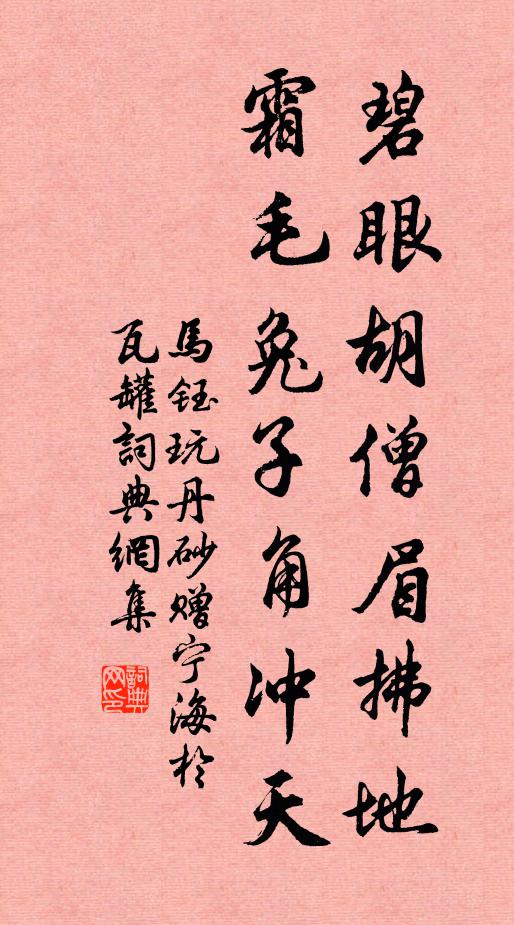 碧眼胡僧眉拂地
霜毛兔子角冲天
馬鈺玩丹砂赠宁海於
瓦罐詞典網集
詞典网印